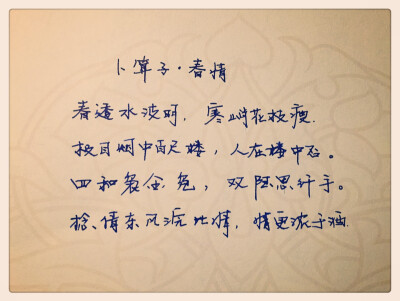 卜算子·春情
春透水波明，寒峭花枝瘦.
极目烟中百尺楼，人在楼中否。
四和袅金凫，双陆思纤手。
捻倩东风浣此情，情更浓于酒